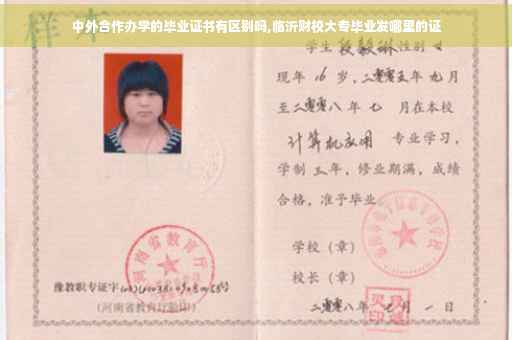 中外合作办学的毕业证书有区别吗,临沂财校大专毕业发哪里的证
样本
学生段毅琳性别女
现年16岁,二零零五年九月
至二零零八年七月在本校
计算机应用 专业学习,
学制三年,修业期满,成绩
合格,准予毕业
学校(章)
校长(章)
河南省教育厅
豫教职专证字
(河南省教育厅验印)
二零零八年 月一日